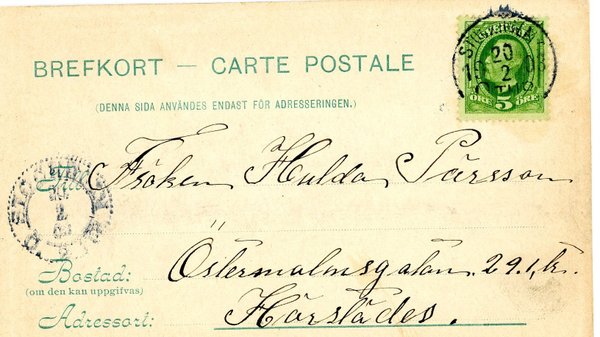 BREFKORT — CARTE POSTALE
(DENNA SIDA ANVÄNDES ENDAST FÖR ADRESSERINGEN.)
20
2
ÖRE 5 ÖRE
Till Fröken Hulda Pärsson
Bostad: Östermalmsgatan 29. 1 tr.
(om den kan uppgifvas)
Adressort: Härstädes.